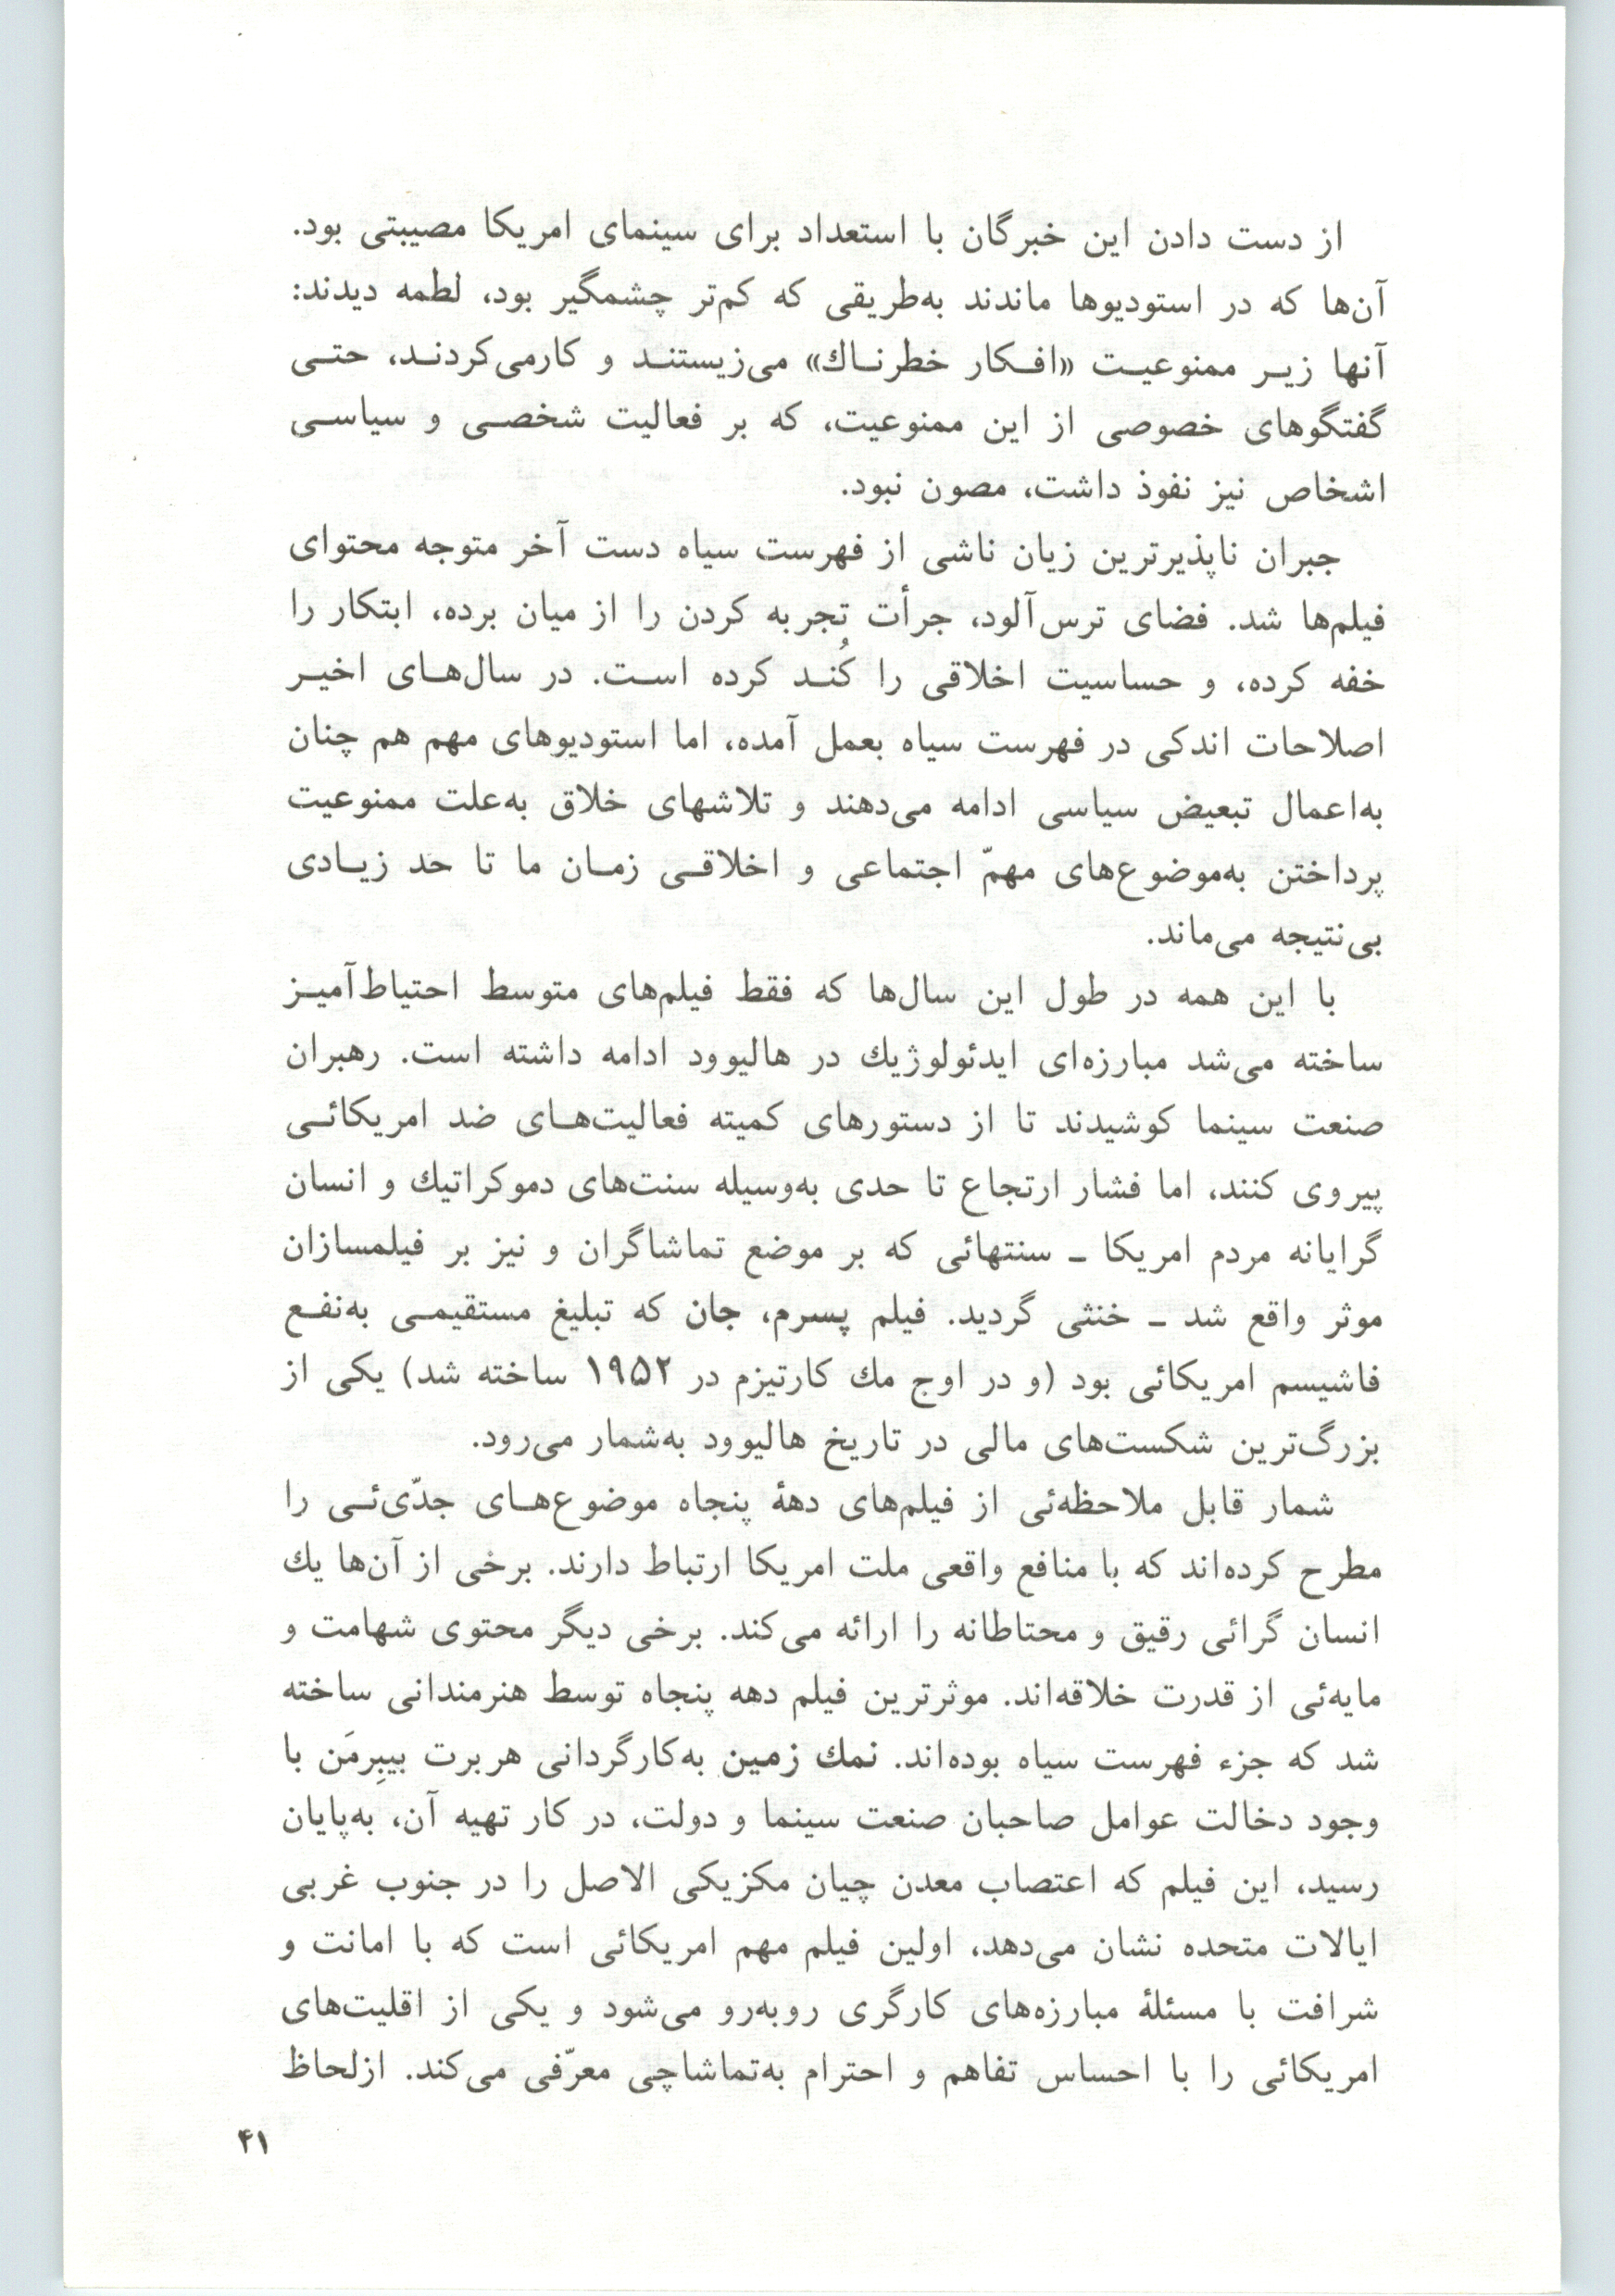 از دست دادن این خبرگان با استعداد برای سینمای امریکا مصیبتی بود.
آن‌ها که در استودیوها ماندند به‌طریقی که کم‌تر چشمگیر بود، لطمه دیدند:
آنها زیـر ممنوعیـت «افـکار خطرنـاك» می‌زیستنـد و کارمی‌کردنـد، حتـی
گفتگوهای خصوصی از این ممنوعیت، که بر فعالیت شخصـی و سیاسـی
اشخاص نیز نفوذ داشت، مصون نبود.
جبران ناپذیرترین زیان ناشی از فهرست سیاه دست آخر متوجه محتوای
فیلم‌ها شد. فضای ترس‌آلود، جرأت تجربه کردن را از میان برده، ابتکار را
خفه کرده، و حساسیت اخلاقی را کُنـد کرده اسـت. در سال‌هـای اخیـر
اصلاحات اندکی در فهرست سیاه بعمل آمده، اما استودیوهای مهم هم چنان
به‌اعمال تبعیض سیاسی ادامه می‌دهند و تلاشهای خلاق به‌علت ممنوعیت
پرداختن به‌موضوع‌های مهمّ اجتماعی و اخلاقـی زمـان ما تا حد زیـادی
بی‌نتیجه می‌ماند.
با این همه در طول این سال‌ها که فقط فیلم‌های متوسط احتیاط‌آمیـز
ساخته می‌شد مبارزه‌ای ایدئولوژیك در هالیوود ادامه داشته است. رهبران
صنعت سینما کوشیدند تا از دستورهای کمیته فعالیت‌هـای ضد امریکائـی
پیروی کنند، اما فشار ارتجاع تا حدی به‌وسیله سنت‌های دموکراتیك و انسان
گرایانه مردم امریکا ـ سنتهائی که بر موضع تماشاگران و نیز بر فیلمسازان
موثر واقع شد ـ خنثی گردید. فیلم پسرم، جان که تبلیغ مستقیمـی به‌نفـع
فاشیسم امریکائی بود (و در اوج مك کارتیزم در ۱۹۵۲ ساخته شد) یکی از
بزرگ‌ترین شکست‌های مالی در تاریخ هالیوود به‌شمار می‌رود.
شمار قابل ملاحظه‌ئی از فیلم‌های دههٔ پنجاه موضوع‌هـای جدّی‌ئـی را
مطرح کرده‌اند که با منافع واقعی ملت امریکا ارتباط دارند. برخی از آن‌ها یك
انسان گرائی رقیق و محتاطانه را ارائه می‌کند. برخی دیگر محتوی شهامت و
مایه‌ئی از قدرت خلاقه‌اند. موثرترین فیلم دهه پنجاه توسط هنرمندانی ساخته
شد که جزء فهرست سیاه بوده‌اند. نمك زمین به‌کارگردانی هربرت بیبِرمَن با
وجود دخالت عوامل صاحبان صنعت سینما و دولت، در کار تهیه آن، به‌پایان
رسید، این فیلم که اعتصاب معدن چیان مکزیکی الاصل را در جنوب غربی
ایالات متحده نشان می‌دهد، اولین فیلم مهم امریکائی است که با امانت و
شرافت با مسئلهٔ مبارزه‌های کارگری روبه‌رو می‌شود و یکی از اقلیت‌های
امریکائی را با احساس تفاهم و احترام به‌تماشاچی معرّفی می‌کند. ازلحاظ
۴۱